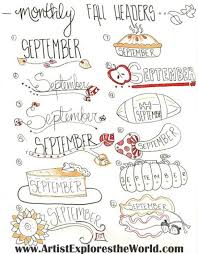 monthly FALL HEADERS
SEPTEMBER
SEPTEMBER
September
SEPTEMBER
September
SEPTEMBER
SEPTEMBER
SEPTEMBER
SEPTEMBER
SEPTEMBER
SEPTEMBER
SEPTEMBER
www.ArtistExplorestheWorld.com